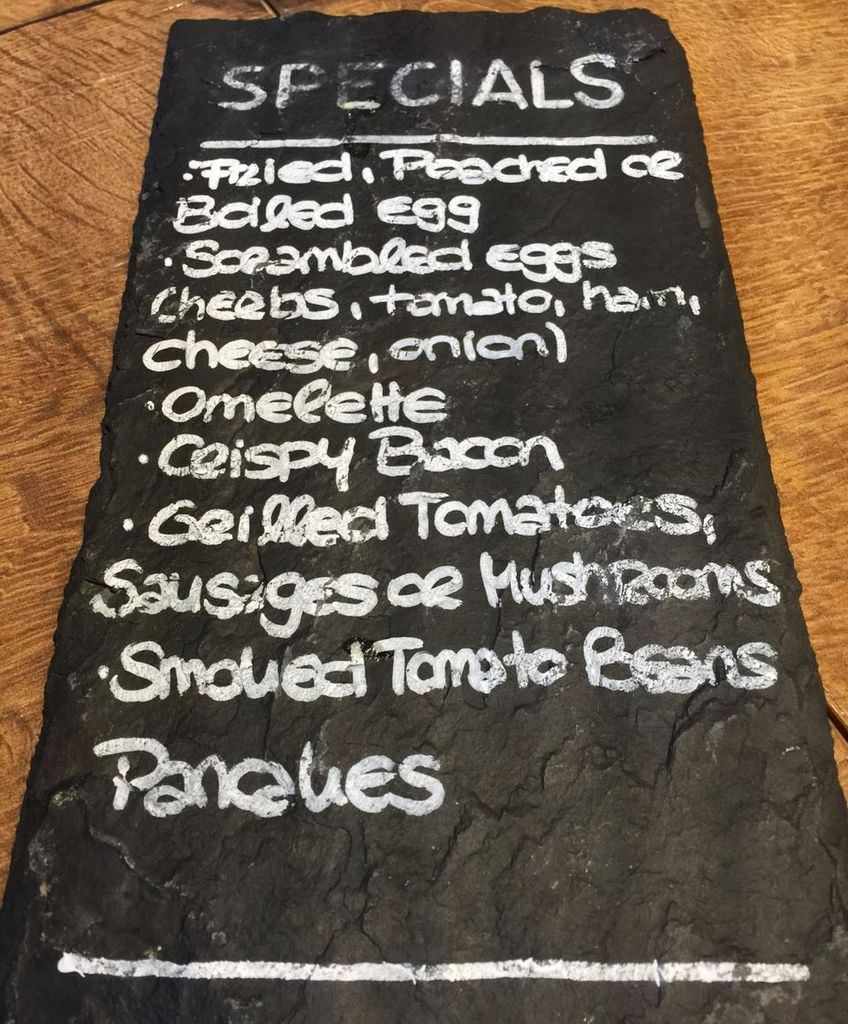 SPECIALS
·Fried, Poached or
Boiled Egg
·Scrambled eggs
(heebs, tomato, ham,
cheese, onion)
·Omelette
·Crispy Bacon
·Grilled Tomatoes,
Sausages or Mushrooms
·Smoked Tomato Beans
Pancakes